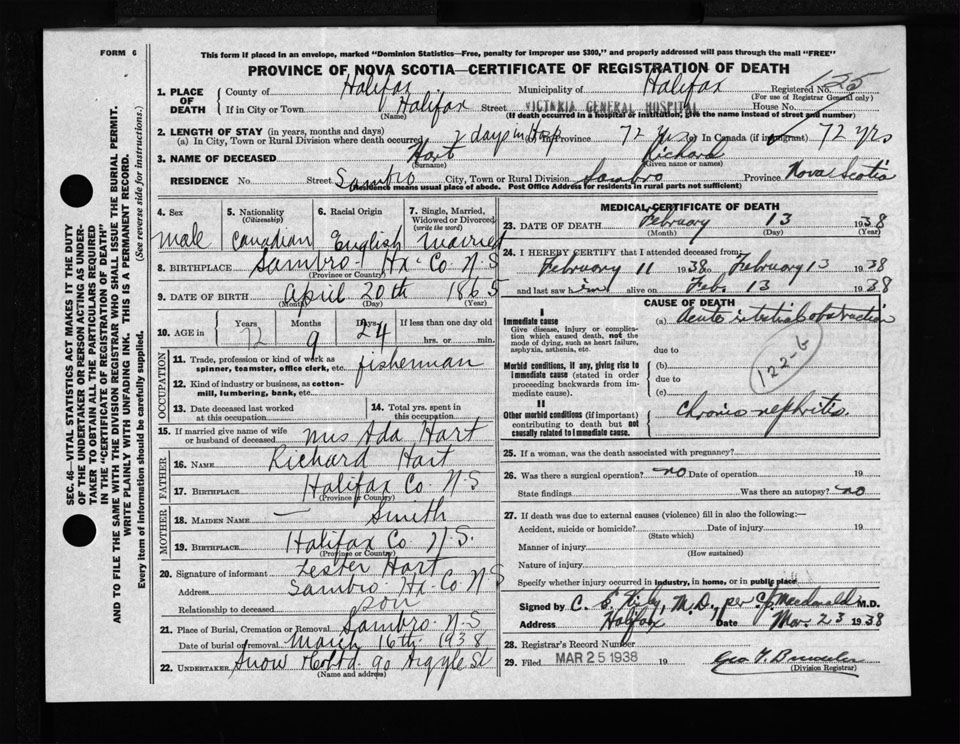 FORM 6
This form if placed in an envelope, marked "Dominion Statistics—Free, penalty for improper use $300," and properly addressed will pass through the mail "FREE"
PROVINCE OF NOVA SCOTIA—CERTIFICATE OF REGISTRATION OF DEATH
1. PLACE OF DEATH County of Halifax Municipality of Halifax Registered No. 125
(For use of Registrar General only)
If in City or Town Halifax Street VICTORIA GENERAL HOSPITAL House No.
(Name) (If death occurred in a hospital or institution, give the name instead of street and number)
2. LENGTH OF STAY (in years, months and days)
(a) In City, Town or Rural Division where death occurred 2 days in Hosp (b) in Province 72 yrs (c) In Canada (if immigrant) 72 yrs
3. NAME OF DECEASED Hart Richard
(Surname) (Given name or names)
RESIDENCE No. Street Sambro City, Town or Rural Division Sambro Province Nova Scotia
(Residence means usual place of abode. Post Office Address for residents in rural parts not sufficient)
4. Sex 5. Nationality 6. Racial Origin 7. Single, Married, Widowed or Divorced
(Citizenship) (write the word)
Male Canadian English Married
8. BIRTHPLACE Sambro Hx. Co. N.S
(Province or Country)
9. DATE OF BIRTH April 20th 1865
(Month) (Day) (Year)
10. AGE in Years Months Days If less than one day old
72 9 24 hrs. or min.
OCCUPATION
11. Trade, profession or kind of work as spinner, teamster, office clerk, etc. fisherman
12. Kind of industry or business, as cotton-mill, lumbering, bank, etc.
13. Date deceased last worked at this occupation
14. Total yrs. spent in this occupation
15. If married give name of wife or husband of deceased Mrs Ada Hart
FATHER
16. NAME Richard Hart
17. BIRTHPLACE Halifax Co N.S
(Province or Country)
MOTHER
18. MAIDEN NAME — Smith
19. BIRTHPLACE Halifax Co. N.S.
(Province or Country)
20. Signature of informant Lester Hart
Address Sambro Hx. Co N S
Relationship to deceased son
21. Place of Burial, Cremation or Removal Sambro N.S
Date of burial or removal March 16th 1938
22. UNDERTAKER Snow 90 Argyle St
(Name and address)
MEDICAL CERTIFICATE OF DEATH
23. DATE OF DEATH February 13 1938
(Month) (Day) (Year)
24. I HEREBY CERTIFY that I attended deceased from:
February 11 1938 to February 13 1938
and last saw him alive on Feb. 13 1938
CAUSE OF DEATH
I
Immediate cause (a) Acute intestinal obstruction
Give disease, injury or complication which caused death, not the mode of dying, such as heart failure, asphyxia, asthenia, etc.
due to
122-6
Morbid conditions, if any, giving rise to immediate cause (stated in order proceeding backwards from immediate cause).
(b)
due to
(c)
II
Other morbid conditions (if important) contributing to death but not causally related to immediate cause.
Chronic nephritis.
25. If a woman, was the death associated with pregnancy?
26. Was there a surgical operation? no Date of operation 19
State findings Was there an autopsy? no
27. If death was due to external causes (violence) fill in also the following:—
Accident, suicide or homicide? Date of injury 19
(State which)
Manner of injury
(How sustained)
Nature of injury
Specify whether injury occurred in industry, in home, or in public place
Signed by C. E. M.D., per Macdonald M.D.
Address Halifax Date Mar. 23 1938
28. Registrar's Record Number
29. Filed MAR 25 1938 19 Geo
(Division Registrar)
SEC. 46—VITAL STATISTICS ACT MAKES IT THE DUTY
OF THE UNDERTAKER OR PERSON ACTING AS UNDER-
TAKER TO OBTAIN ALL THE PARTICULARS REQUIRED
IN THE "CERTIFICATE OF REGISTRATION OF DEATH"
AND TO FILE THE SAME WITH THE DIVISION REGISTRAR WHO SHALL ISSUE THE BURIAL PERMIT.
WRITE PLAINLY WITH UNFADING INK. THIS IS A PERMANENT RECORD.
Every item of information should be carefully supplied. (See reverse side for instructions.)